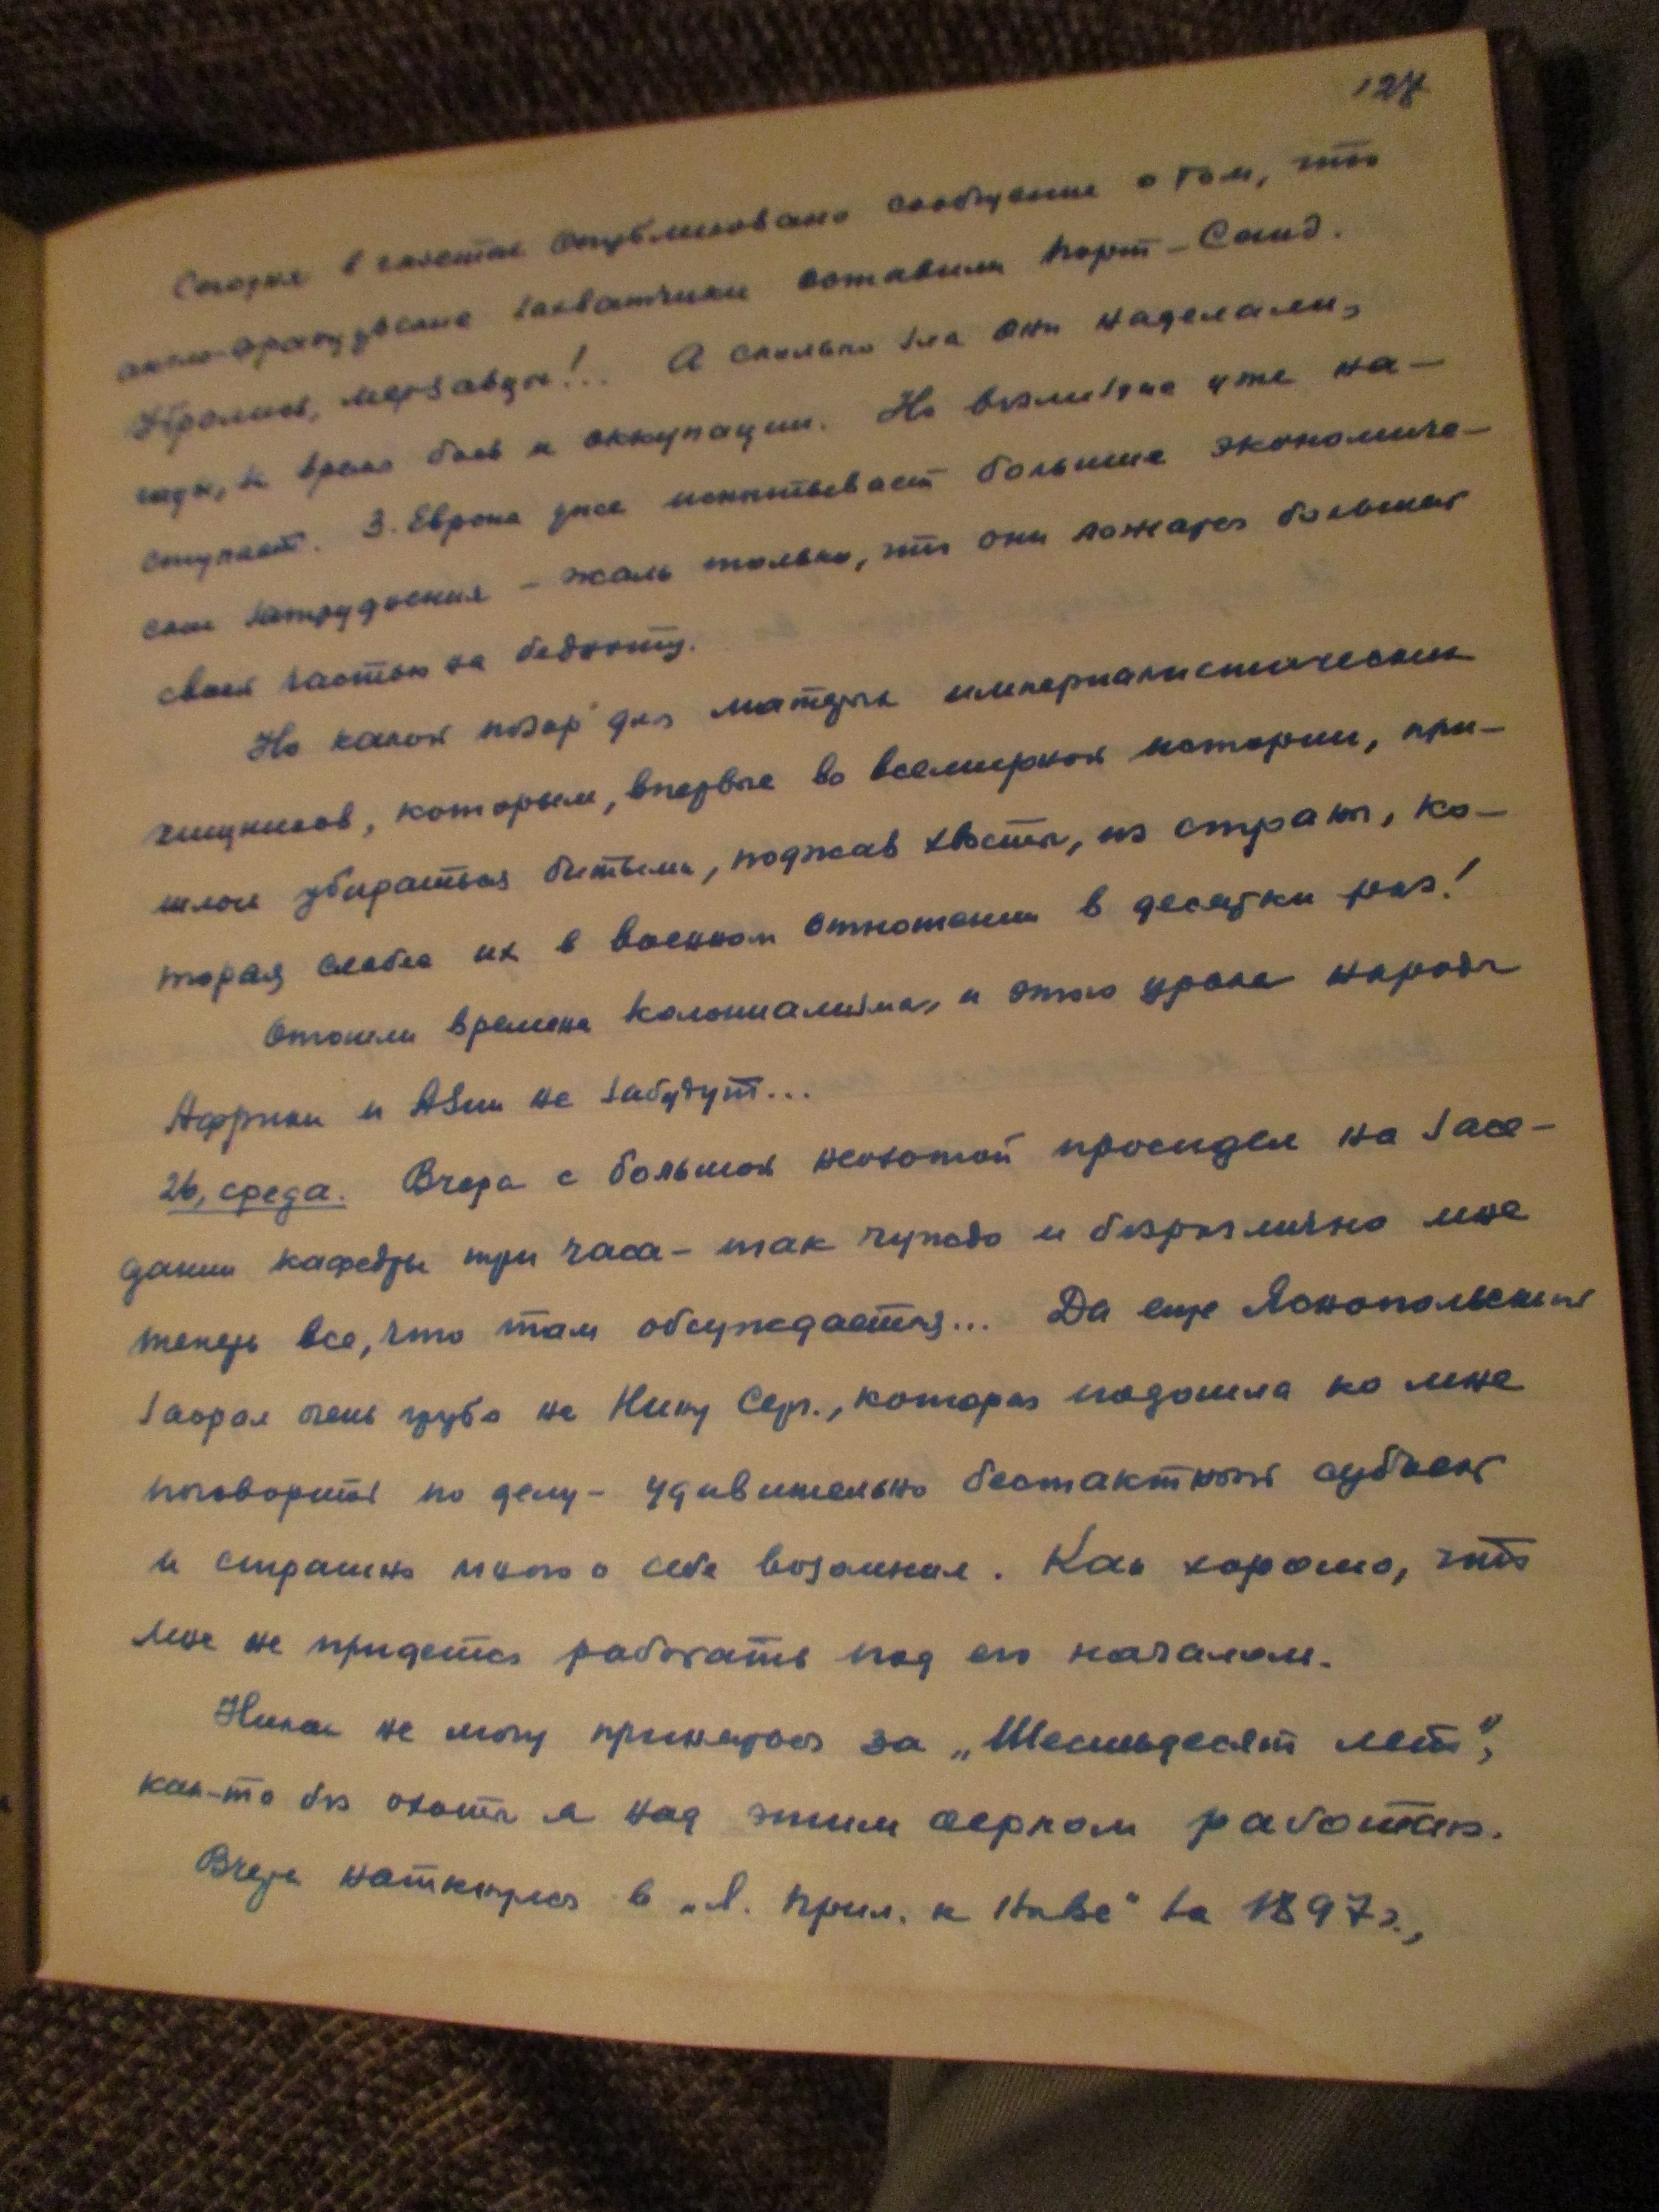 127
Сегодня в газетах опубликовано сообщение о том, что
англо-французские захватчики оставили Порт-Саид.
Убрались, мерзавцы!.. А сколько зла они наделали,
во время боев и оккупации. Но возмездие уже на-
ступает. З. Европа уже испытывает большие экономиче-
ские затруднения – жаль только, что они ложатся большей
своей частью на бедноту.
Но какой позор для матерых империалистических
хищников, которым, впервые во всемирной истории, при-
шлось убираться битыми, поджав хвосты, из страны, ко-
торая слабее их в военном отношении в десятки раз!
Отошли времена колониализма, и этого урока народы
Африки и Азии не забудут...
26, среда. Вчера с большой неохотой просидел на засе-
дании кафедры три часа – так чуждо и безразлично мне
теперь все, что там обсуждается... Да еще Яснопольский
заорал очень грубо на Нину Серг., которая подошла ко мне
поговорить по делу – удивительно бестактный субъект
и страшно много о себе возомнил. Как хорошо, что
мне не придется работать под его началом.
Никак не могу приняться за „Шестьдесят лет",
как-то без охоты я над этим очерком работаю.
Вчера наткнулся в „Л. Прил. к Ниве" за 1897 г.,